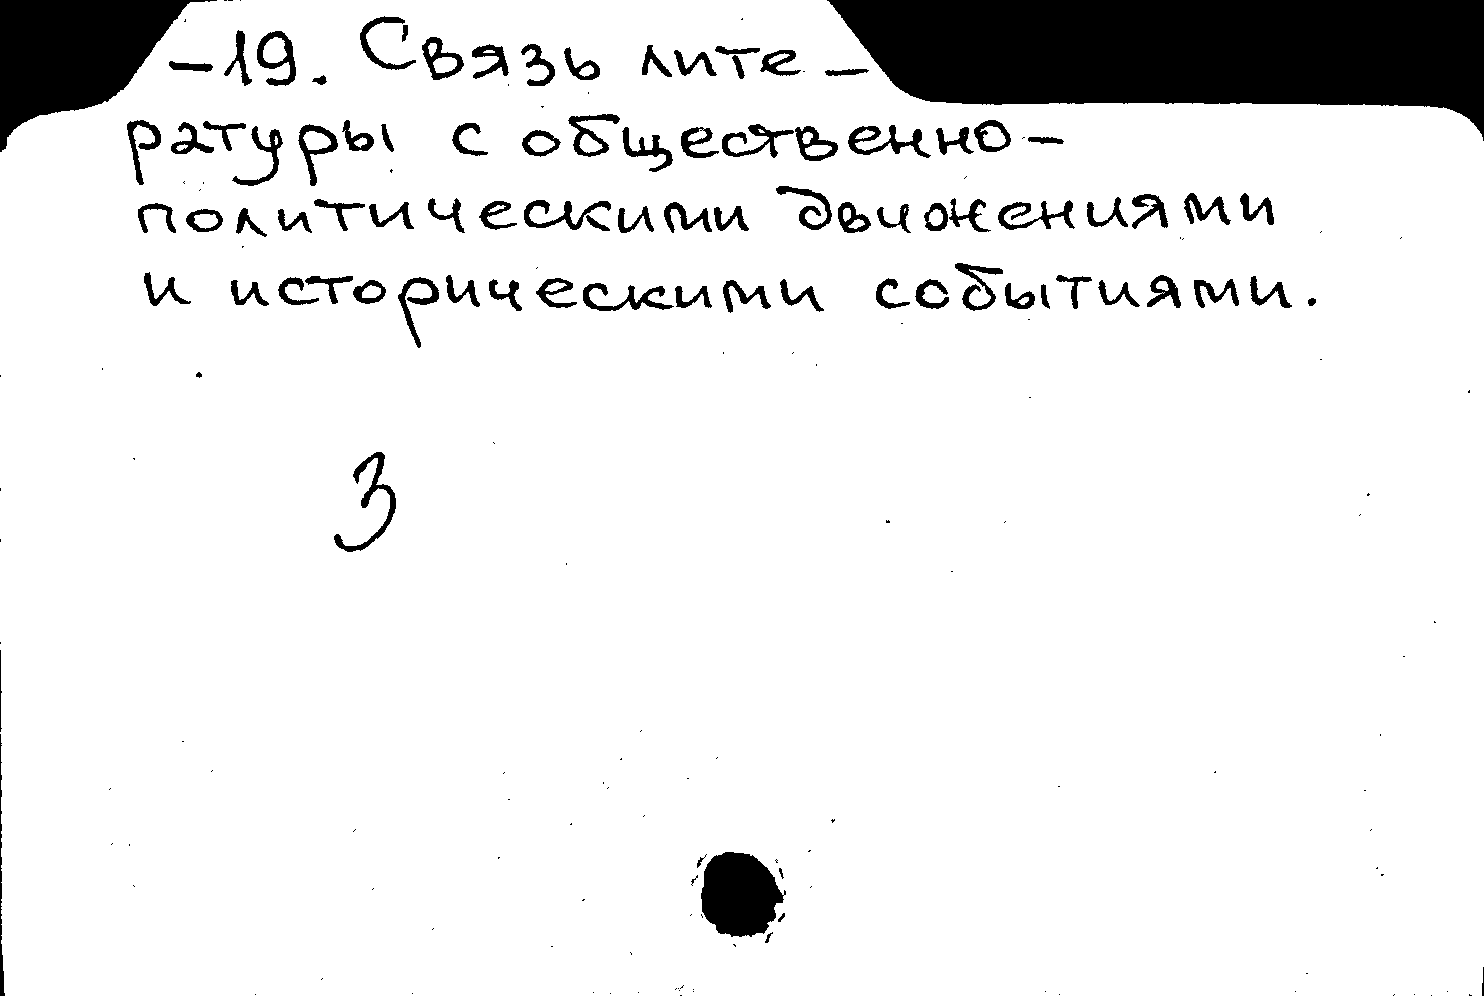 -19. Связь лите-
ратуры с общественно-
политическими движениями
и историческими событиями.
З